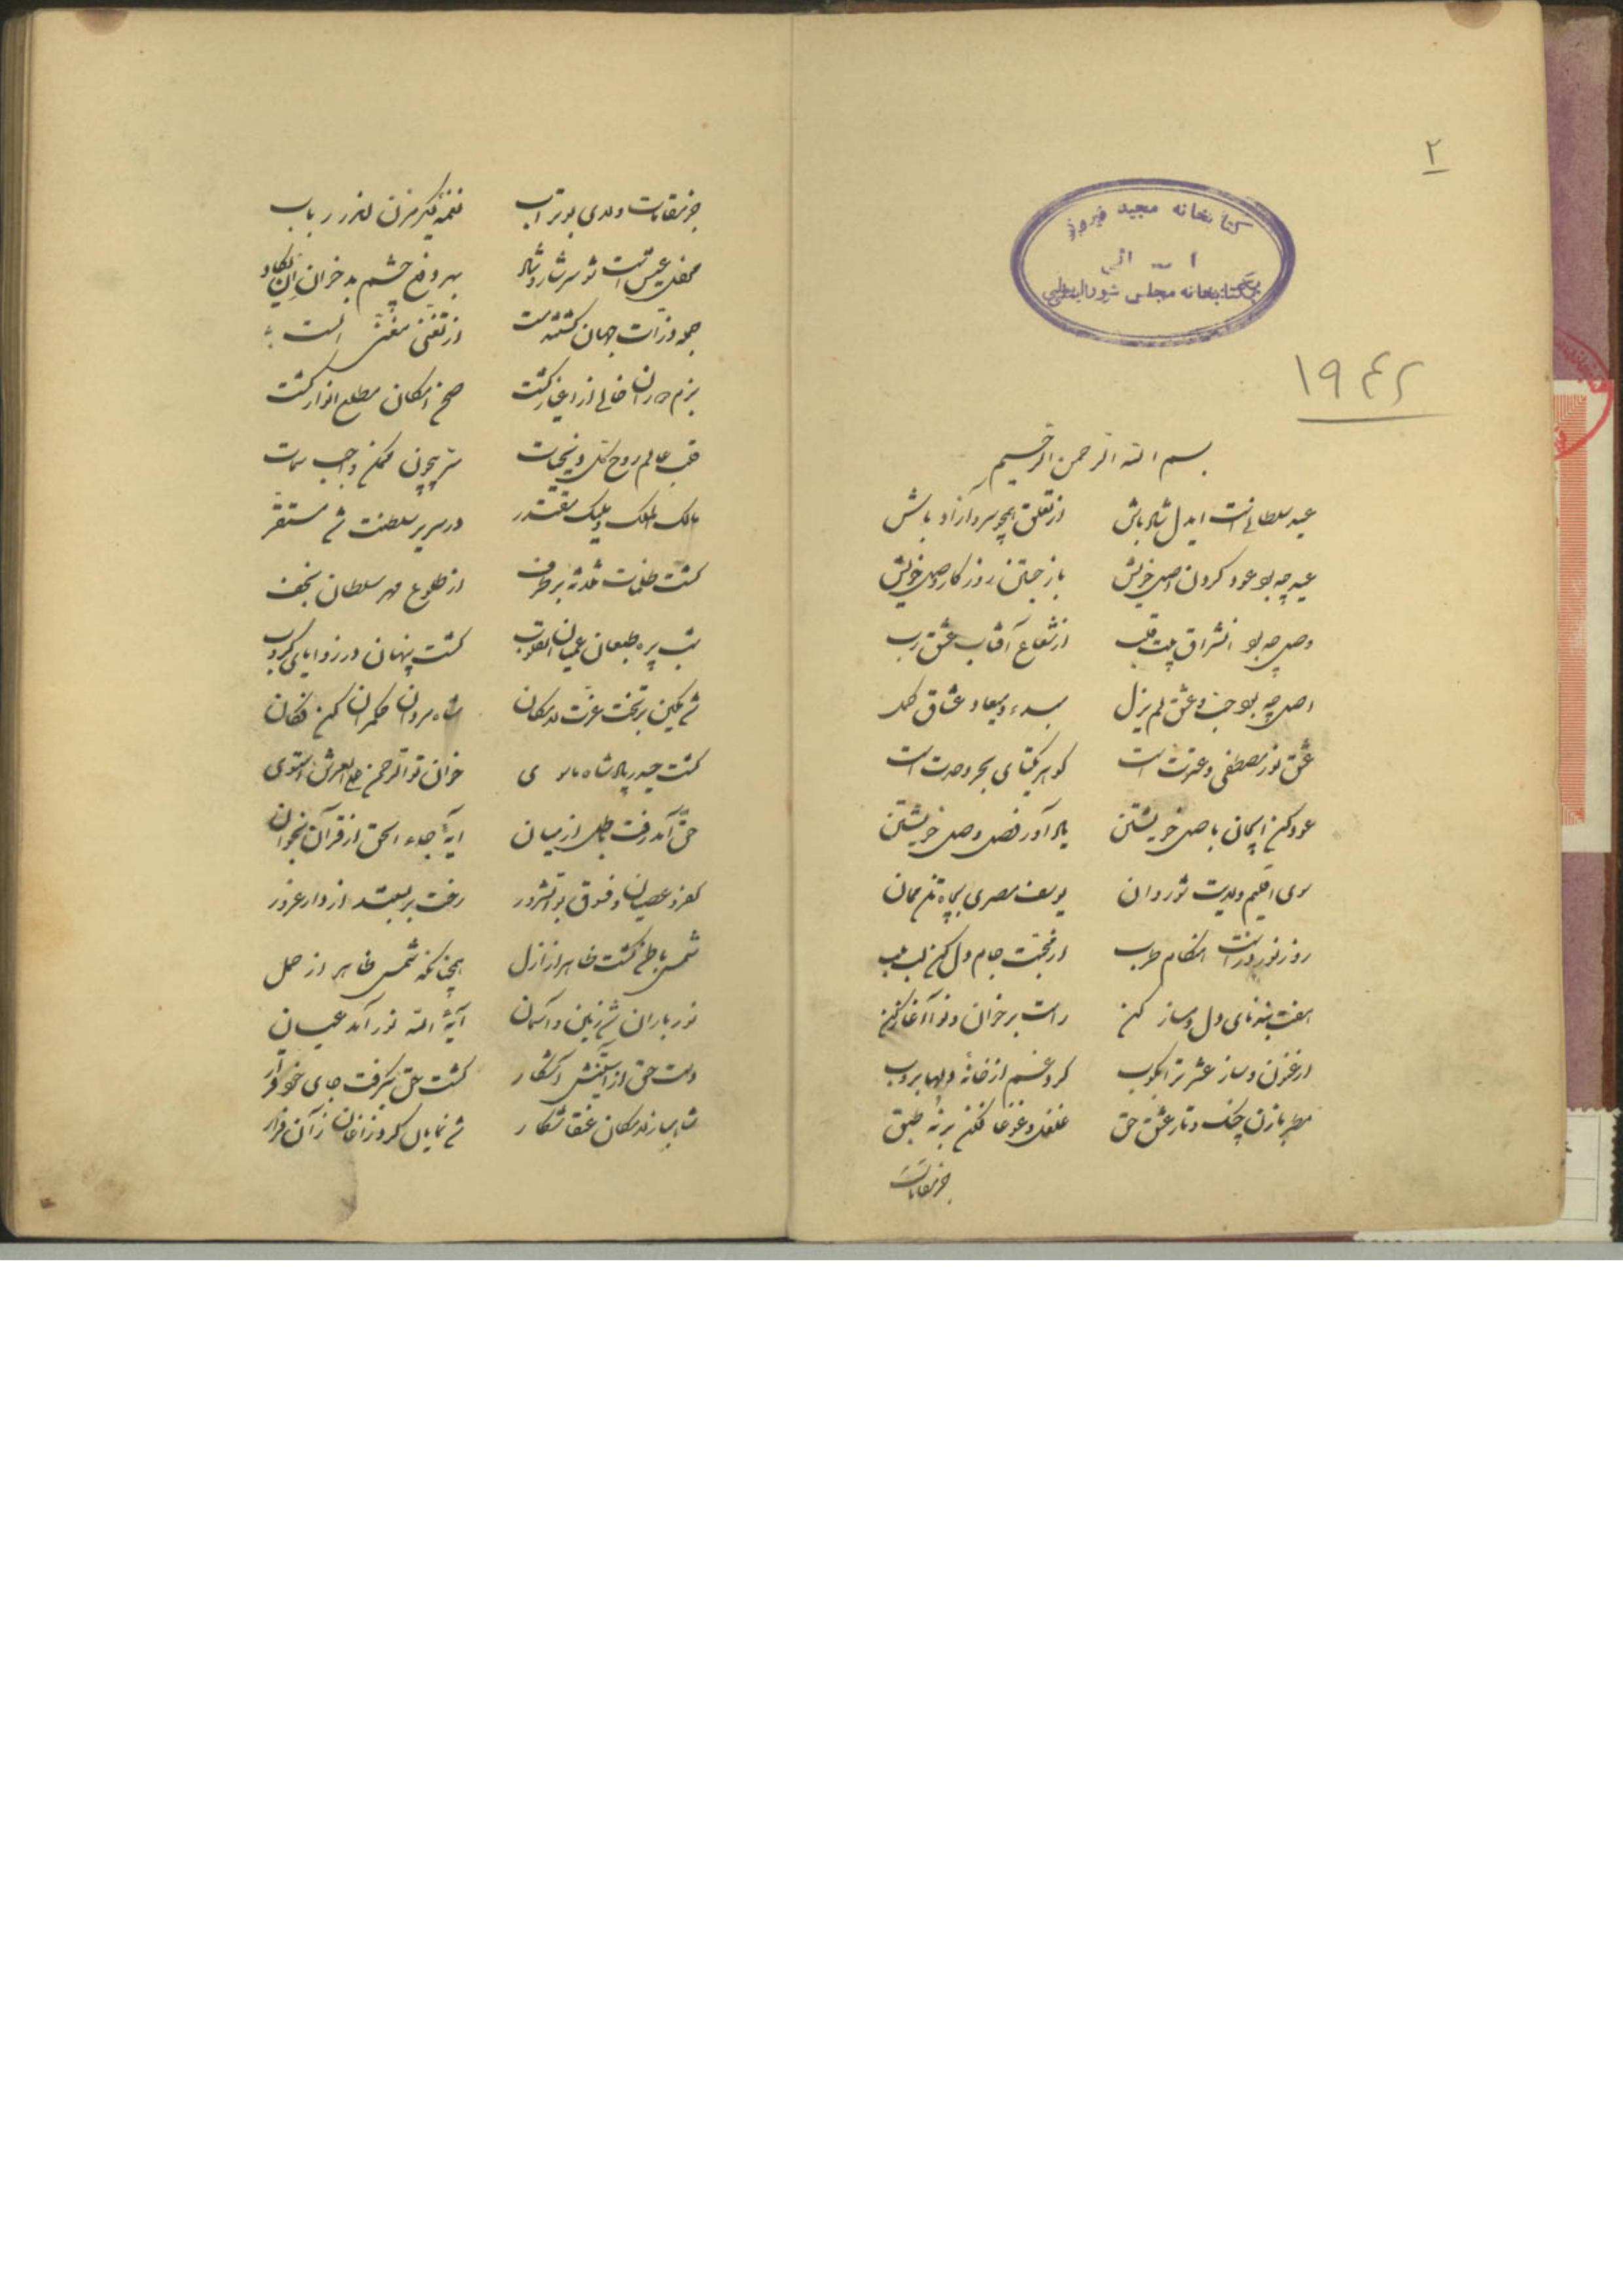 ۲
کتابخانه مجید فیروز
کتابخانه مجلس شورای ملی
۱۹۴۲
بسم الله الرحمن الرحیم
عید سلطانی است ایدل شاد باش از تعلق همچو سرو آزاد باش
عید چه بود عود کردن اصل خویش باز جستن روزکار وصل خویش
وصل چه بود اشراق بیت قلب از شعاع آفتاب عشق رب
اصل چه بود حب و عشق لم یزل مبدء و میعاد عشاق
عشق نور مصطفی و عترت است کوهر یکتای بحر وحدت است
عود کن ایجان باصل خویشتن یاد آور فصل وصل خویشتن
سوی اقلیم ولایت شو روان یوسف مصری بچاه تن ممان
روز نوروز است هنکام طرب از محبت جام دل کن لب بلب
هفت بندنای دل دمساز کن راست برخوان و نوا آغاز کن
ارغنون و ساز عشرت را بکوب کرد غم از خانه دلها بروب
مطربا زن چنک و تار عشق حق غلغل و غوغا فکن بر نه طبق
جز مقامات
جز مقامات ولای بوتراب نغمه دیکر مزن اندر رباب
محفل عیش است شو سرشار و شاد بهر دفع چشم بد خوان ان یکاد
جمله ذرات جهان کشته مست از تغنی مغنی الست
بزم خالی از اغیار کشت صبح امکان مطلع انوار کشت
قلب عالم روح کل سر بیچون ممکن واجب سمات
مالک الملک و ملیک مقتدر در سریر سلطنت شد مستقر
کشت ظلمات ثلاثه بر طرف از طلوع مهر سلطان نجف
شب پره طبعان عمیان القلوب کشت پنهان در زوایای کروب
شد مکین بر تخت عزت لامکان شاه مردان حکمران کن فکان
کشت حیدر شاه خوان تو الرحمن علی العرش استوی
حق آمد رفت باطل از میان ایه جاء الحق از قرآن بخوان
کفر و عصیان و فسوق رخت بر بستند از دار غرور
شمس باطن کشت ظاهر از ازل همچنانکه شمس ظاهر از حمل
نور باران شد زمین و آسمان آیه الله نور آمد عیان
دست حق از آستینش آشکار کشت حق بکرفت جای خود قرار
شاهباز لامکان عنقا شکار شد نمایان کرد زاغان زآن فرار